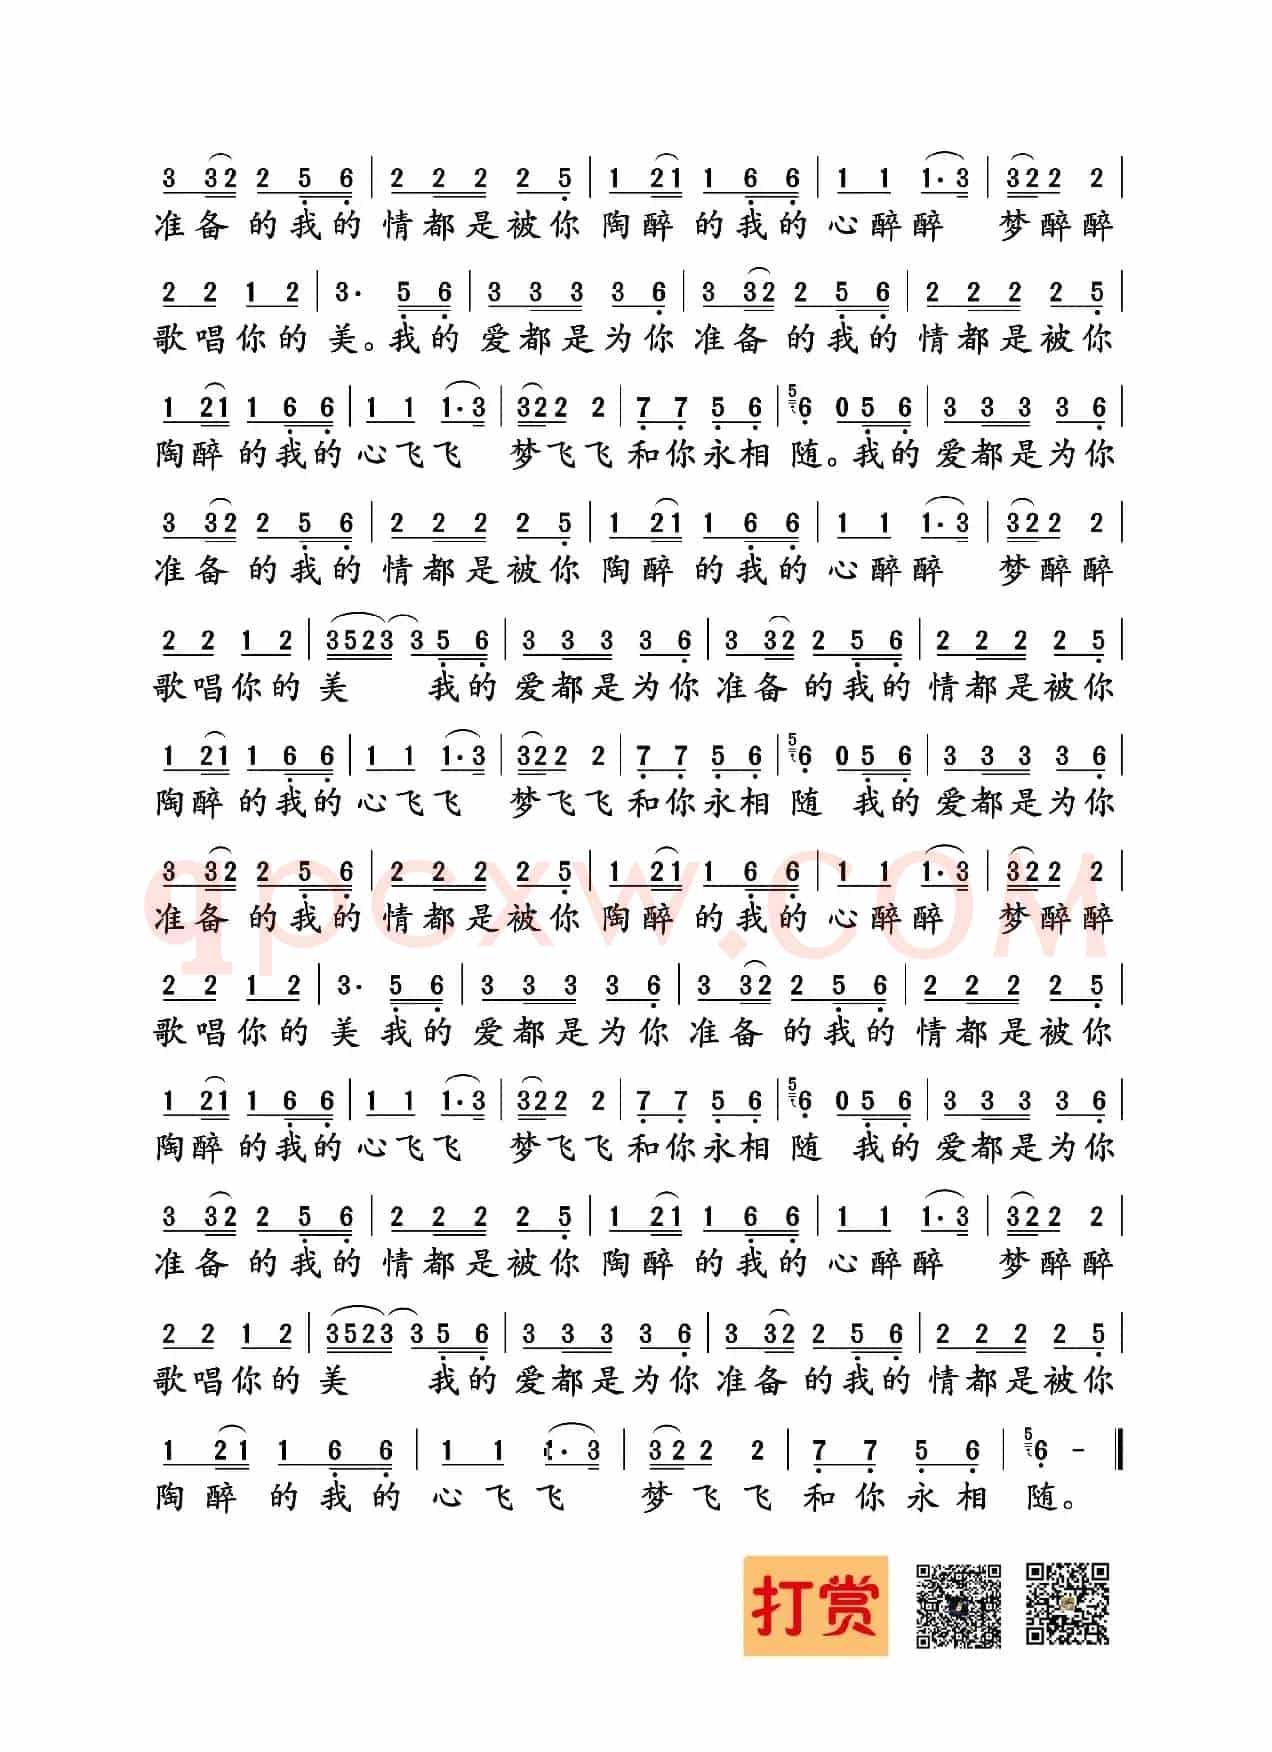 3 32 2 5 6 | 2 2 2 2 5 | 1 21 1 6 6 | 1 1 1·3 | 322 2 |
准备的我的情都是被你陶醉的我的心醉醉 梦醉醉
2 2 1 2 | 3· 5 6 | 3 3 3 3 6 | 3 32 2 5 6 | 2 2 2 2 5 |
歌唱你的美。我的爱都是为你准备的我的情都是被你
1 21 1 6 6 | 1 1 1·3 | 322 2 | 7 7 5 6 | 5 6 0 5 6 | 3 3 3 3 6 |
陶醉的我的心飞飞 梦飞飞和你永相随。我的爱都是为你
3 32 2 5 6 | 2 2 2 2 5 | 1 21 1 6 6 | 1 1 1·3 | 322 2 |
准备的我的情都是被你陶醉的我的心醉醉 梦醉醉
2 2 1 2 | 3523 3 5 6 | 3 3 3 3 6 | 3 32 2 5 6 | 2 2 2 2 5 |
歌唱你的美 我的爱都是为你准备的我的情都是被你
1 21 1 6 6 | 1 1 1·3 | 322 2 | 7 7 5 6 | 5 6 0 5 6 | 3 3 3 3 6 |
陶醉的我的心飞飞 梦飞飞和你永相随 我的爱都是为你
3 32 2 5 6 | 2 2 2 2 5 | 1 21 1 6 6 | 1 1 1·3 | 322 2 |
准备的我的情都是被你陶醉的我的心醉醉 梦醉醉
qpcxw.COM
2 2 1 2 | 3· 5 6 | 3 3 3 3 6 | 3 32 2 5 6 | 2 2 2 2 5 |
歌唱你的美我的爱都是为你准备的我的情都是被你
1 21 1 6 6 | 1 1 1·3 | 322 2 | 7 7 5 6 | 5 6 0 5 6 | 3 3 3 3 6 |
陶醉的我的心飞飞 梦飞飞和你永相随 我的爱都是为你
3 32 2 5 6 | 2 2 2 2 5 | 1 21 1 6 6 | 1 1 1·3 | 322 2 |
准备的我的情都是被你陶醉的我的心醉醉 梦醉醉
2 2 1 2 | 3523 3 5 6 | 3 3 3 3 6 | 3 32 2 5 6 | 2 2 2 2 5 |
歌唱你的美 我的爱都是为你准备的我的情都是被你
1 21 1 6 6 | 1 1 1·3 | 322 2 | 7 7 5 6 | 5 6 - ‖
陶醉的我的心飞飞 梦飞飞和你永相随。
打赏